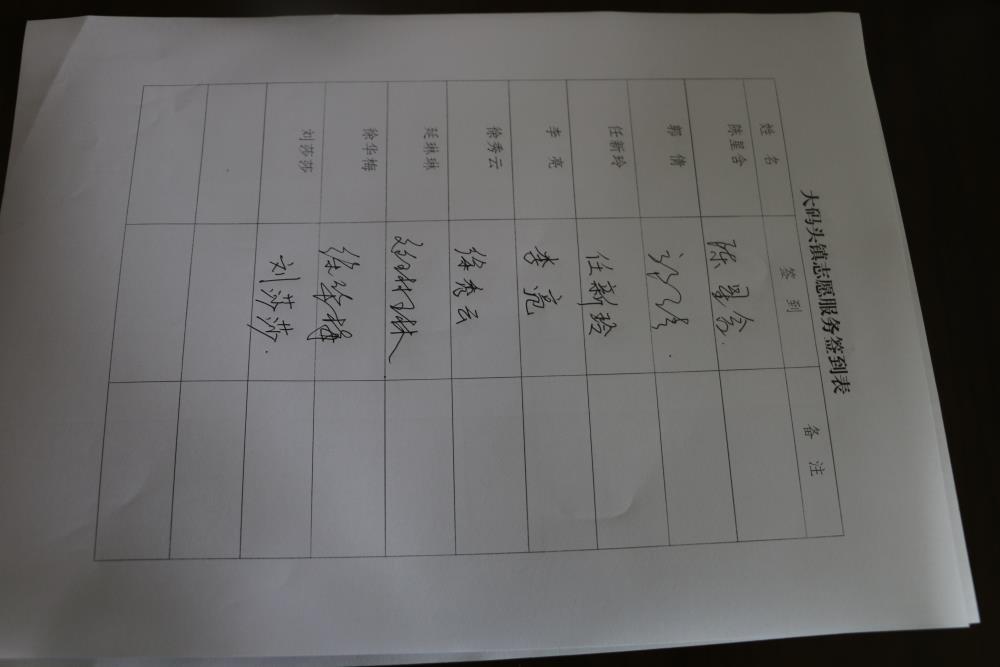 大码头镇志愿服务签到表
姓 名 签 到 备 注
陈星含 陈星含
郭 倩 郭倩
任新玲 任新玲
李 亮 李亮
徐秀云 徐秀云
延琳琳 延琳琳
徐华梅 徐华梅
刘莎莎 刘莎莎